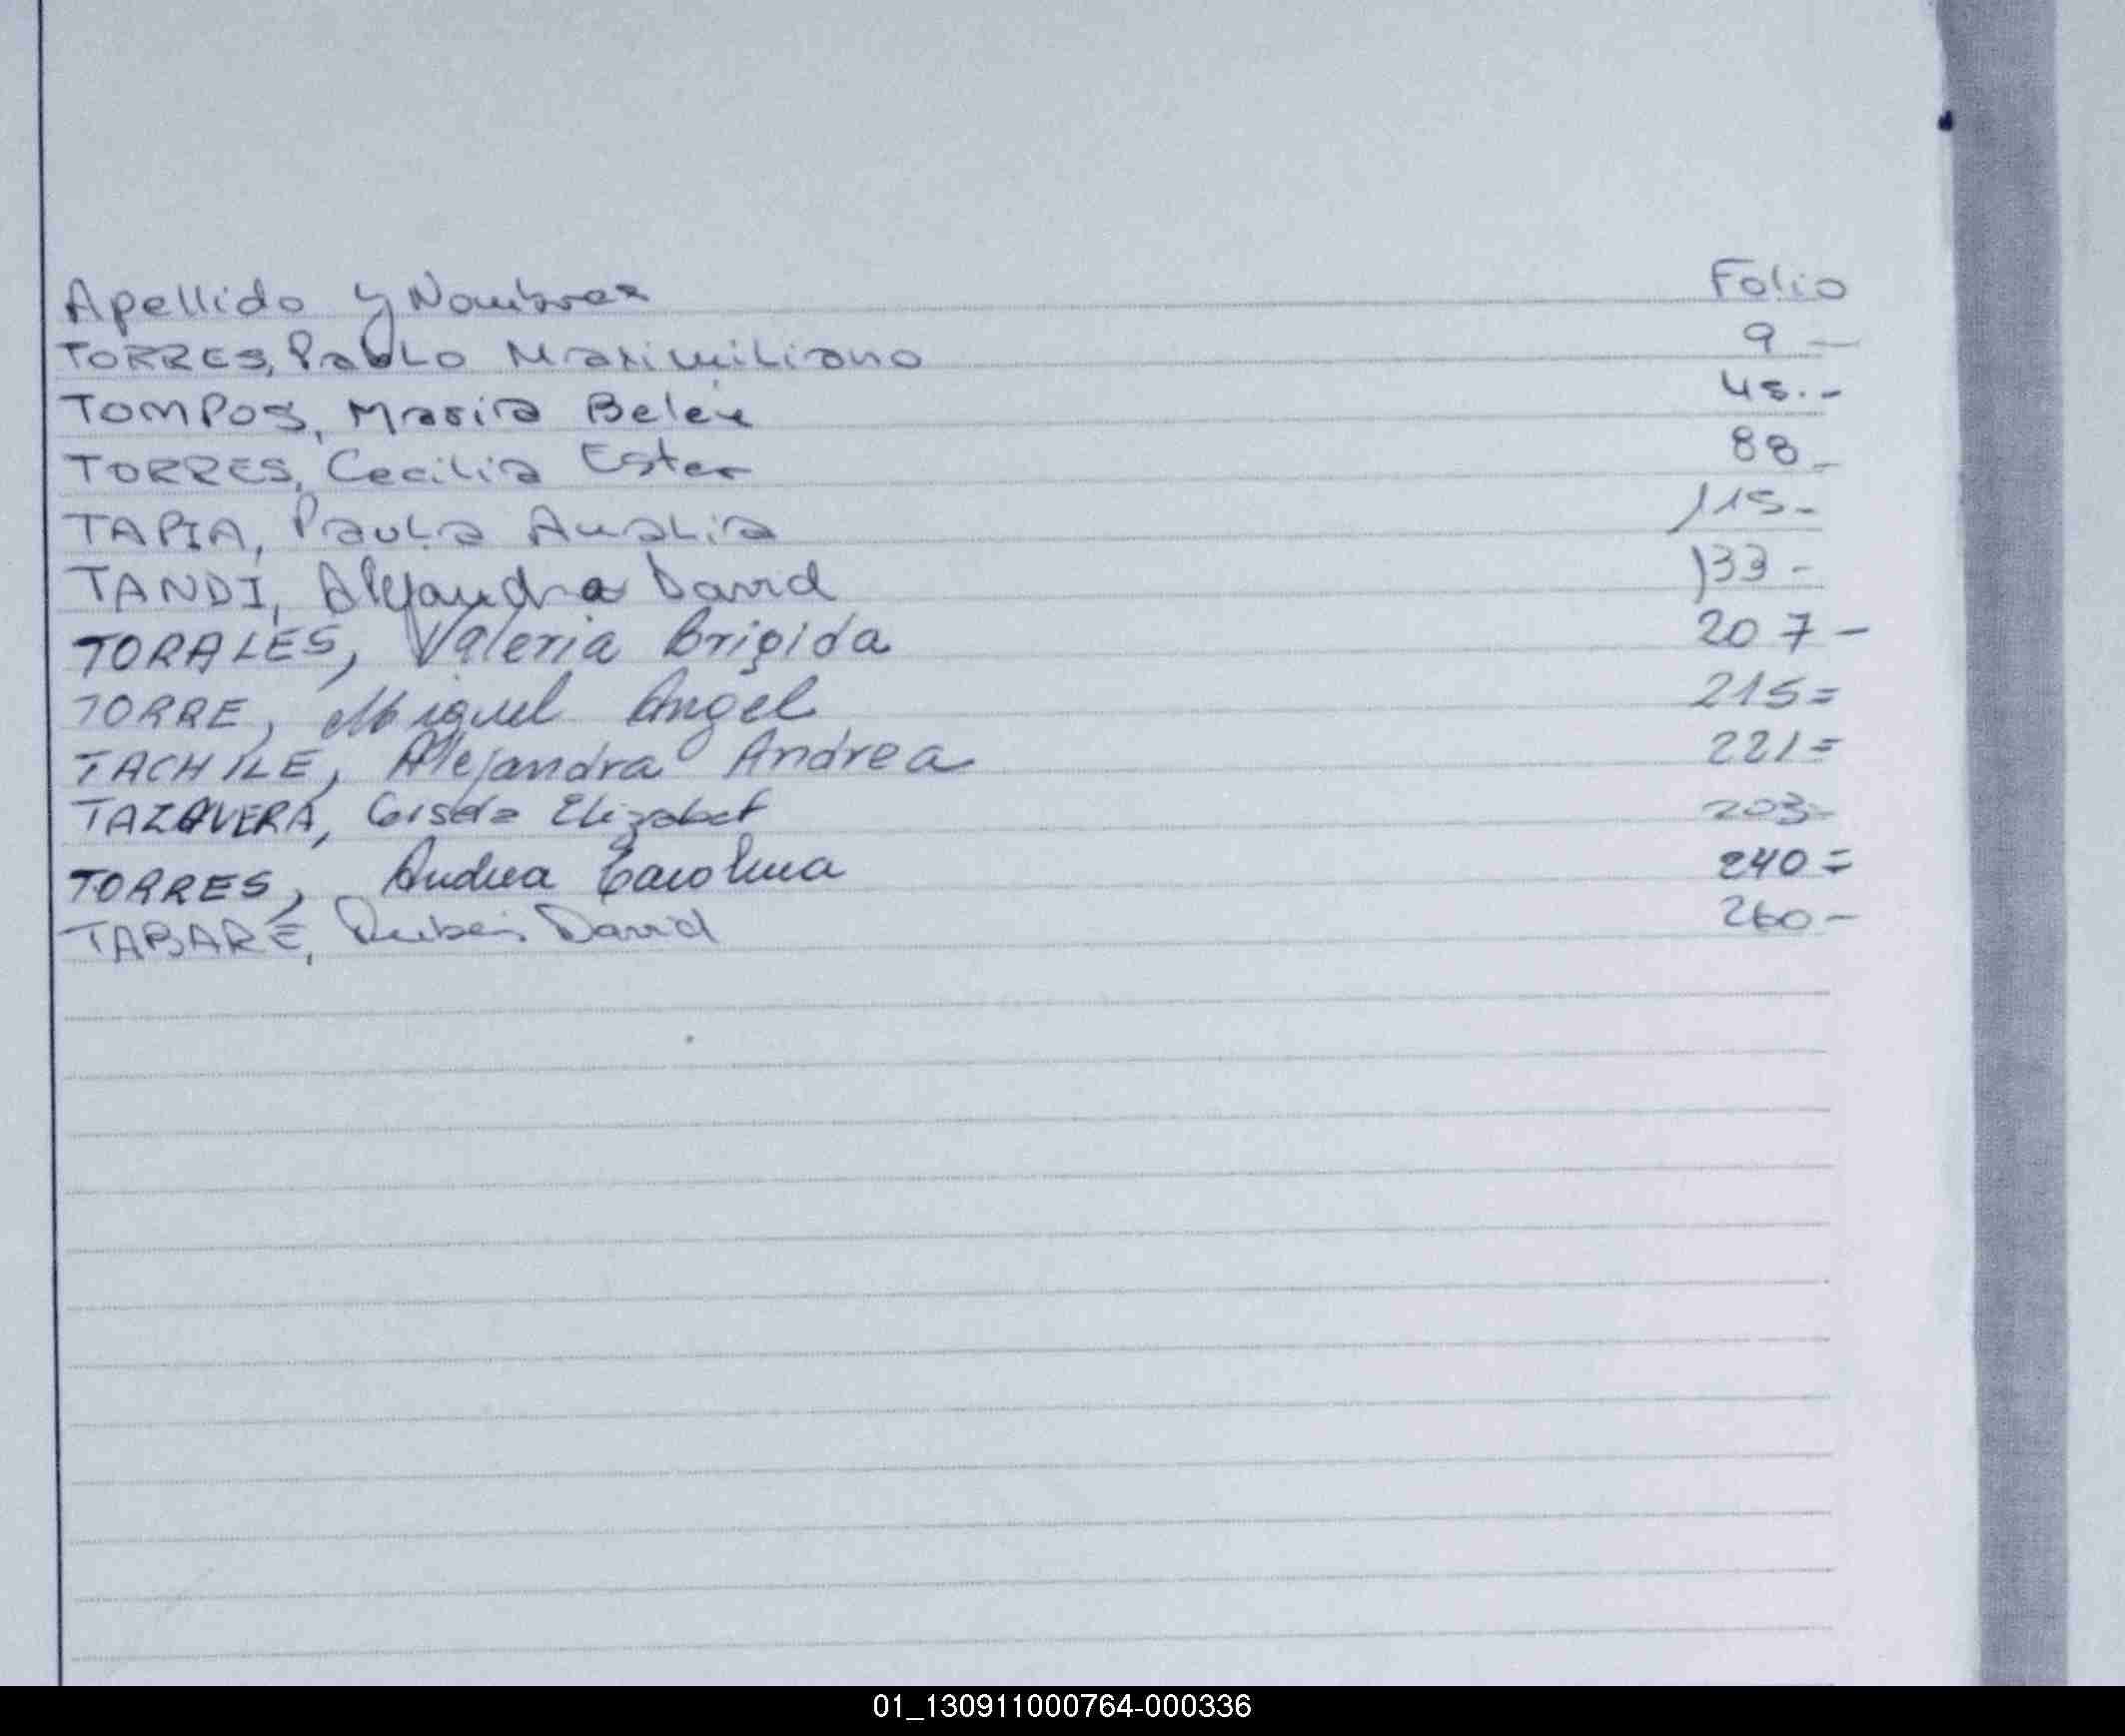 Apellido y Nombres Folio
TORRES, Pablo Maximiliano 9 —
TOMPOS, Maria Belen 45.-
TORRES, Cecilia Ester 88-
TAPIA, Paula Analia 115-
TANDI, Alejandra David 133-
TORALES, Valeria Brigida 207-
TORRE, Miguel Angel 215=
TACHILE, Alejandra Andrea 221=
TALAVERA, Gisela Elizabet 203-
TORRES, Andrea Carolina 240=
TABARE, Ruben David 260-
01_130911000764-000336